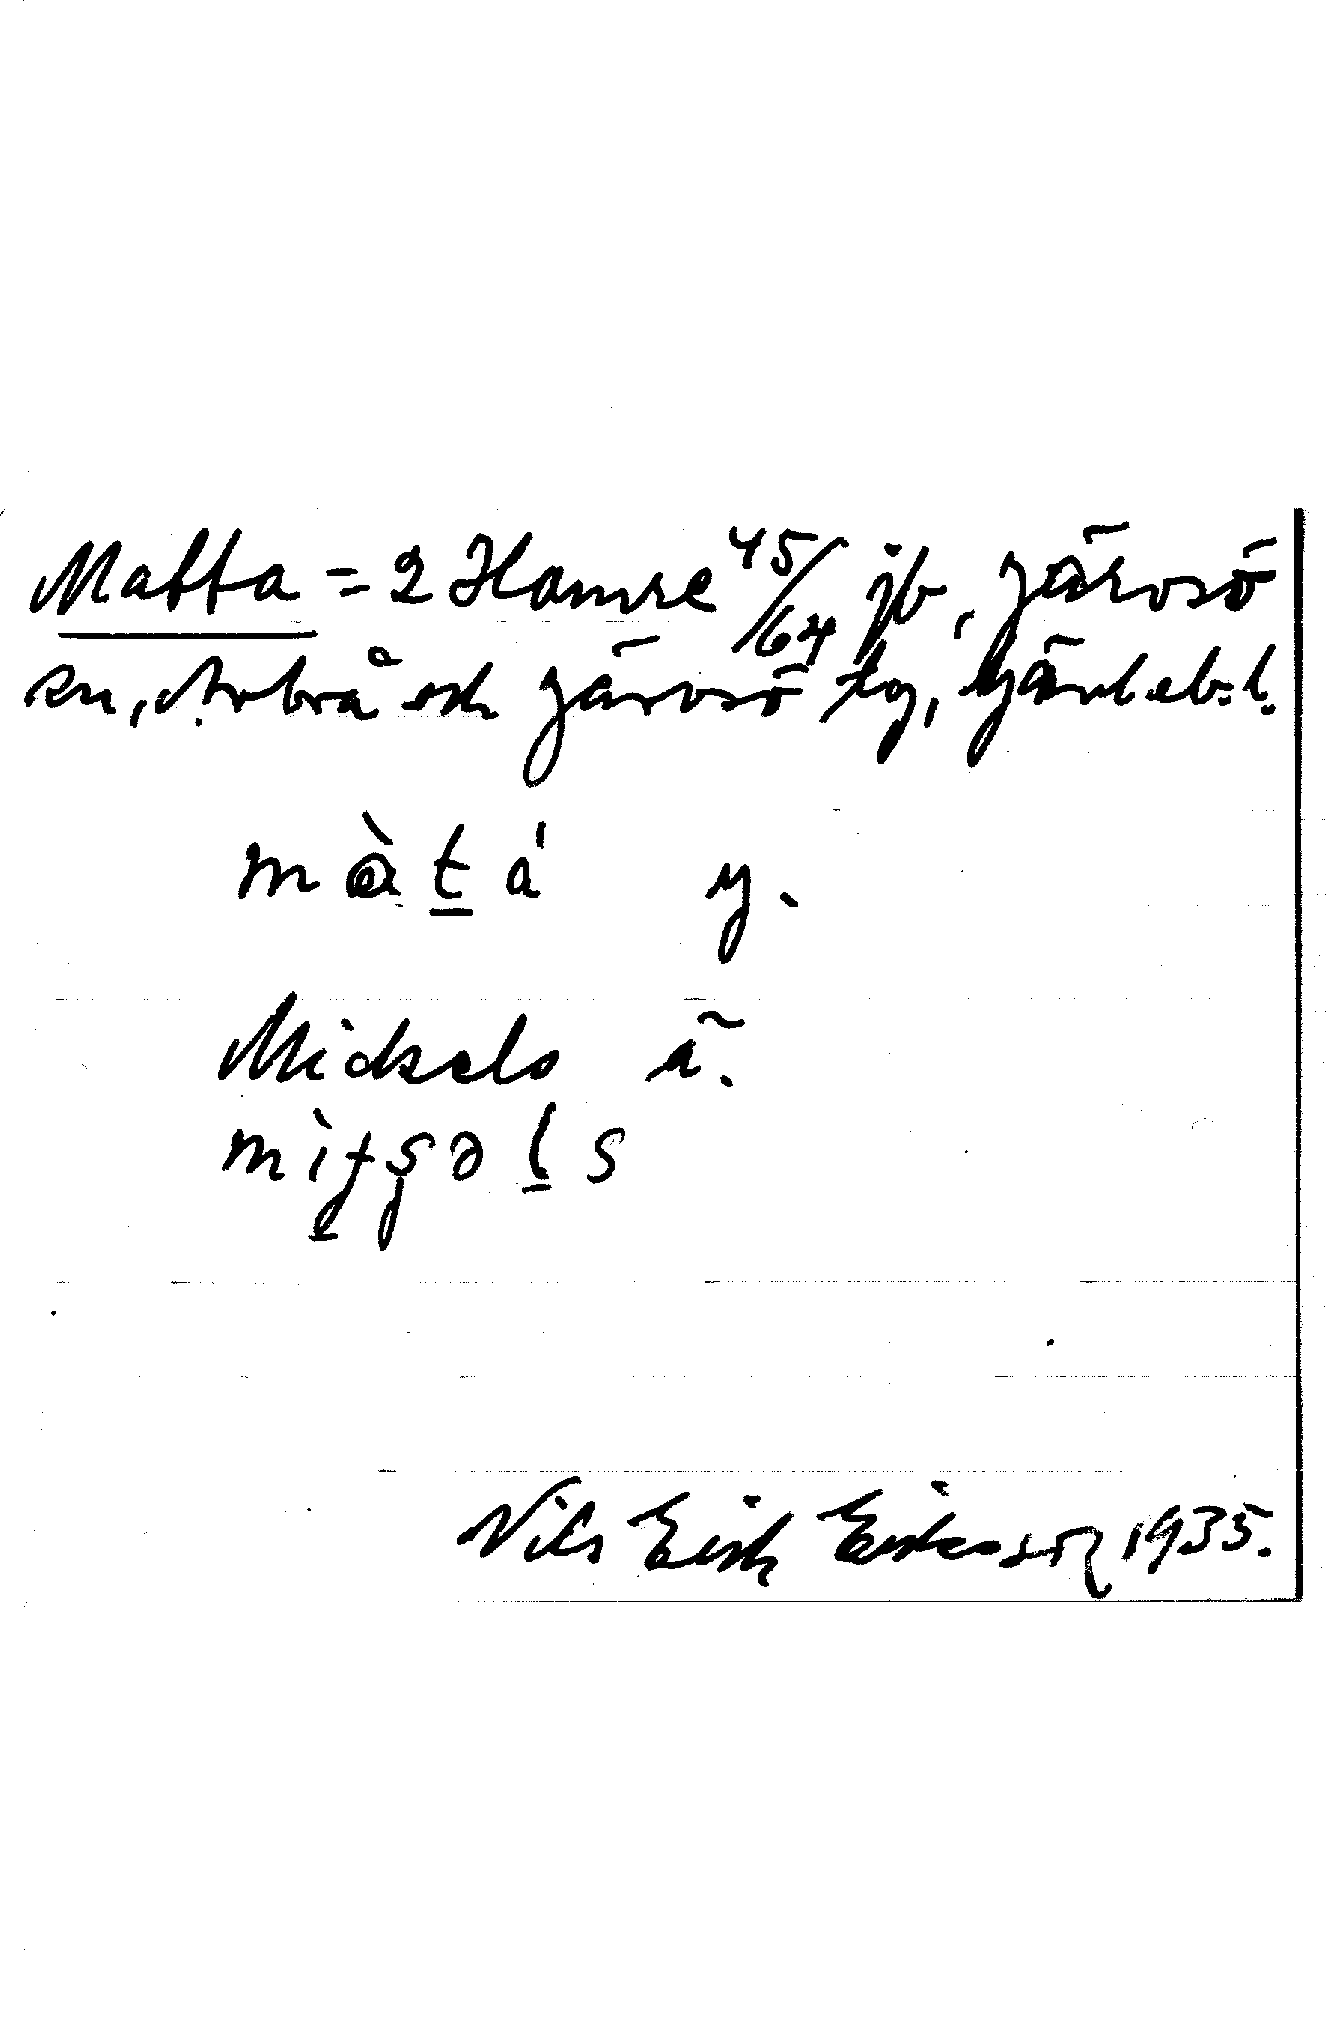 Matta = 2 Hamre 45/64 jb, Järvsö
sn, Arbrå och Järvsö tg, Gävleb. l.
màt̠á y.
Mickels ä.
s
Nils Erik Eriksson 1935.